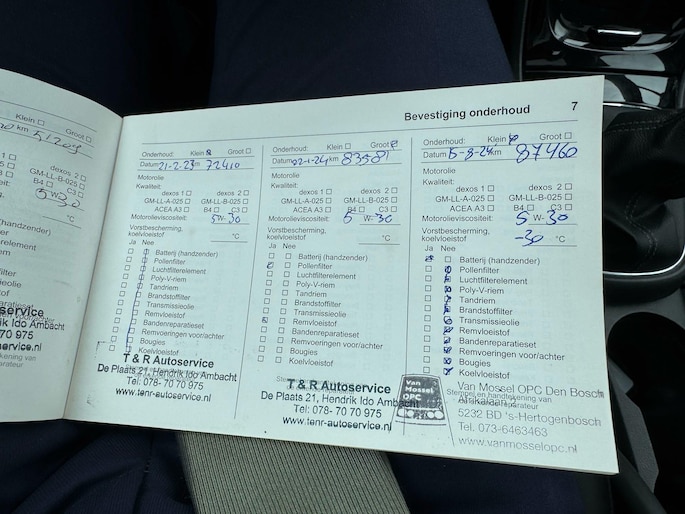 Bevestiging onderhoud 7
Klein ☐ Groot ☐
51209
1 ☐ dexos 2 ☐
GM-LL-B-025 ☐
B4 ☐ C3 ☐
5 W30
°C
(handzender)
filter
element
filter
olie
f
aratieset
oor/achter
autoservice
Hendrik Ido Ambacht
70 70 975
Onderhoud: Klein ☑ Groot ☐
Datum 21-2-23 km 72410
Motorolie
Kwaliteit:
dexos 1 ☐ dexos 2 ☐
GM-LL-A-025 ☐ GM-LL-B-025 ☐
ACEA A3 ☐ B4 ☐ C3 ☐
Motorolieviscositeit: 5W-30
Vorstbescherming,
koelvloeistof °C
Ja Nee
☐ ☐ Batterij (handzender)
☐ ☐ Pollenfilter
☐ ☐ Luchtfilterelement
☐ ☐ Poly-V-riem
☐ ☐ Tandriem
☐ ☐ Brandstoffilter
☐ ☐ Transmissieolie
☐ ☐ Remvloeistof
☐ ☐ Bandenreparatieset
☐ ☐ Remvoeringen voor/achter
☐ ☐ Bougies
☐ ☐ Koelvloeistof
T & R Autoservice
De Plaats 21, Hendrik Ido Ambacht
Tel: 078- 70 70 975
www.tenr-autoservice.nl
Onderhoud: Klein ☐ Groot ☑
Datum 22-1-24 km 83581
Motorolie
Kwaliteit:
dexos 1 ☐ dexos 2 ☐
GM-LL-A-025 ☐ GM-LL-B-025 ☐
ACEA A3 ☐ B4 ☐ C3 ☐
Motorolieviscositeit: 5 W-30
Vorstbescherming,
koelvloeistof °C
Ja Nee
☐ ☐ Batterij (handzender)
☑ ☐ Pollenfilter
☐ ☐ Luchtfilterelement
☐ ☐ Poly-V-riem
☐ ☐ Tandriem
☐ ☐ Brandstoffilter
☐ ☐ Transmissieolie
☑ ☐ Remvloeistof
☐ ☐ Bandenreparatieset
☐ ☐ Remvoeringen voor/achter
☐ ☐ Bougies
☐ ☐ Koelvloeistof
T & R Autoservice
De Plaats 21, Hendrik Ido Ambacht
Tel: 078- 70 70 975
www.tenr-autoservice.nl
Onderhoud: Klein ☑ Groot ☐
Datum 15-8-24 km 87460
Motorolie
Kwaliteit:
dexos 1 ☐ dexos 2 ☐
GM-LL-A-025 ☐ GM-LL-B-025 ☐
ACEA A3 ☐ B4 ☐ C3 ☐
Motorolieviscositeit: 5 W-30
Vorstbescherming,
koelvloeistof -30 °C
Ja Nee
☑ ☐ Batterij (handzender)
☐ ☑ Pollenfilter
☐ ☑ Luchtfilterelement
☐ ☑ Poly-V-riem
☐ ☑ Tandriem
☐ ☑ Brandstoffilter
☐ ☑ Transmissieolie
☐ ☑ Remvloeistof
☐ ☑ Bandenreparatieset
☐ ☑ Remvoeringen voor/achter
☐ ☑ Bougies
☐ ☑ Koelvloeistof
Van Mossel
OPC
Van Mossel OPC Den Bosch
Stempel en handtekening van
5232 BD 's-Hertogenbosch
Tel. 073-6463463
www.vanmosselopc.nl